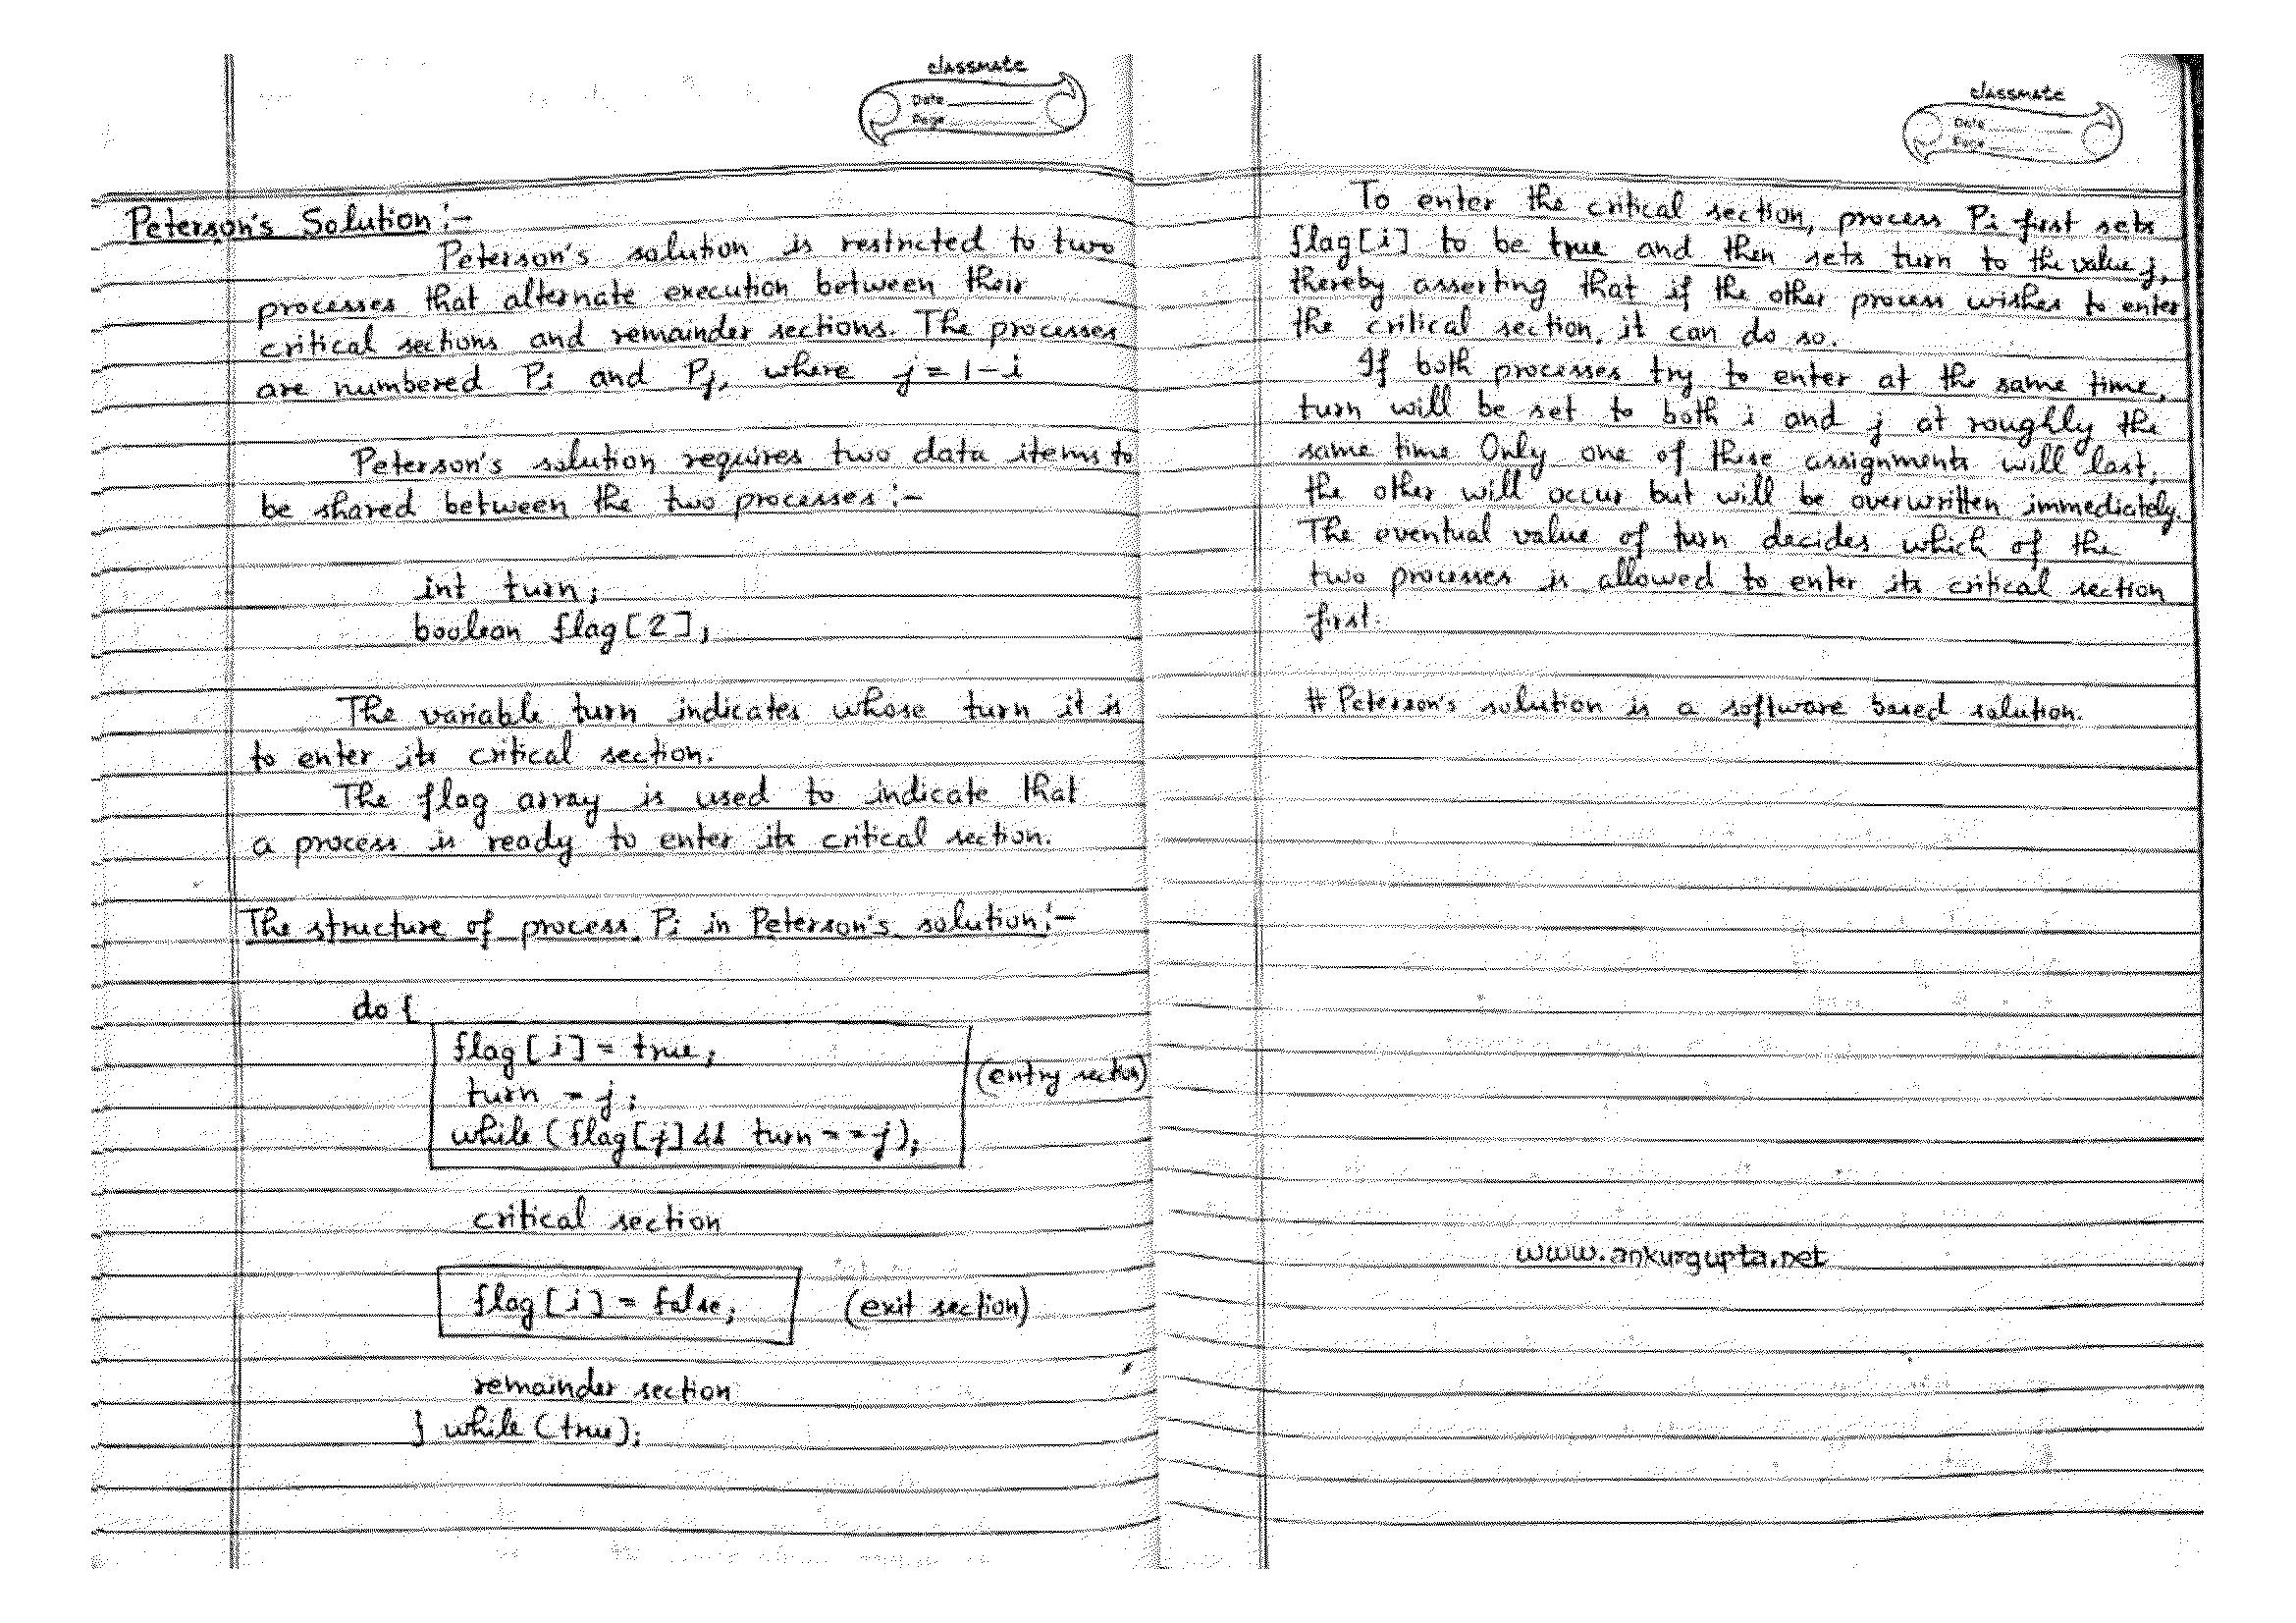 classmate
Date
Page
Peterson's Solution :-
Peterson's solution is restricted to two
processes that alternate execution between their
critical sections and remainder sections. The processes
are numbered Pi and Pj, where j = 1 - i
Peterson's solution requires two data items to
be shared between the two processes :-
int turn;
boolean flag[2];
The variable turn indicates whose turn it is
to enter its critical section.
The flag array is used to indicate that
a process is ready to enter its critical section.
The structure of process Pi in Peterson's solution :-
do {
flag[i] = true;
turn = j;
(entry section)
while (flag[j] && turn == j);
critical section
flag[i] = false; (exit section)
remainder section
} while (true);
classmate
Date
Page
To enter the critical section, process Pi first sets
flag[i] to be true and then sets turn to the value j,
thereby asserting that if the other process wishes to enter
the critical section, it can do so.
If both processes try to enter at the same time,
turn will be set to both i and j at roughly the
same time. Only one of these assignments will last,
the other will occur but will be overwritten immediately.
The eventual value of turn decides which of the
two processes is allowed to enter its critical section
first.
# Peterson's solution is a software based solution.
www.ankurgupta.net